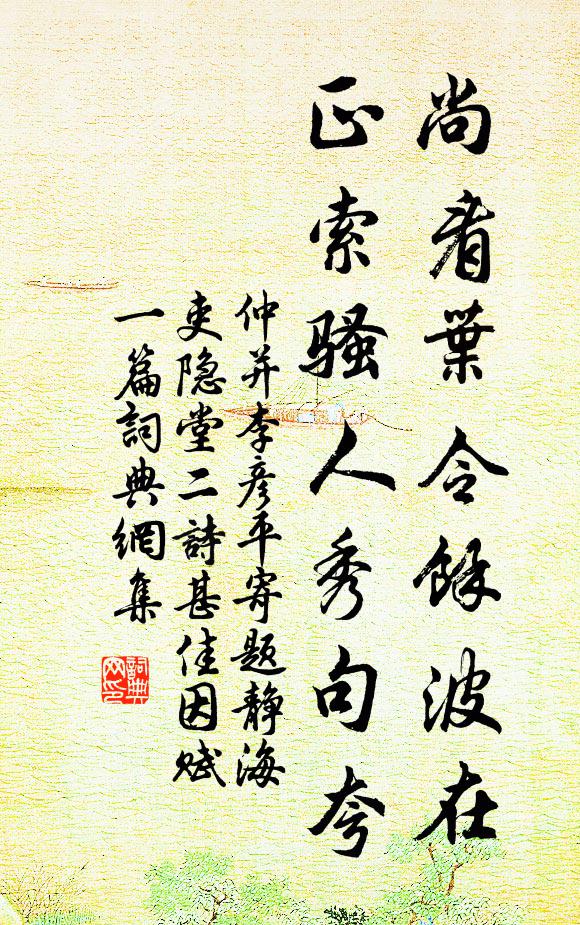 尚看葉令餘波在
正索騷人秀句夸
仲并李彦平寄题静海
吏隐堂二詩甚佳因赋
一篇詞典網集
詞典网印